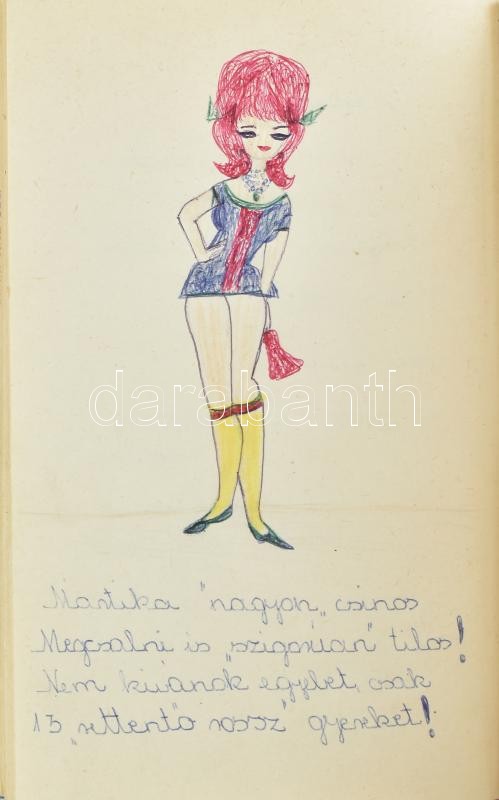 darabanth
Martika "nagyon" csinos
Megcsalni is "szigorúan" tilos!
Nem kívánok egybet, csak
13 "rettentő rossz" gyereket!